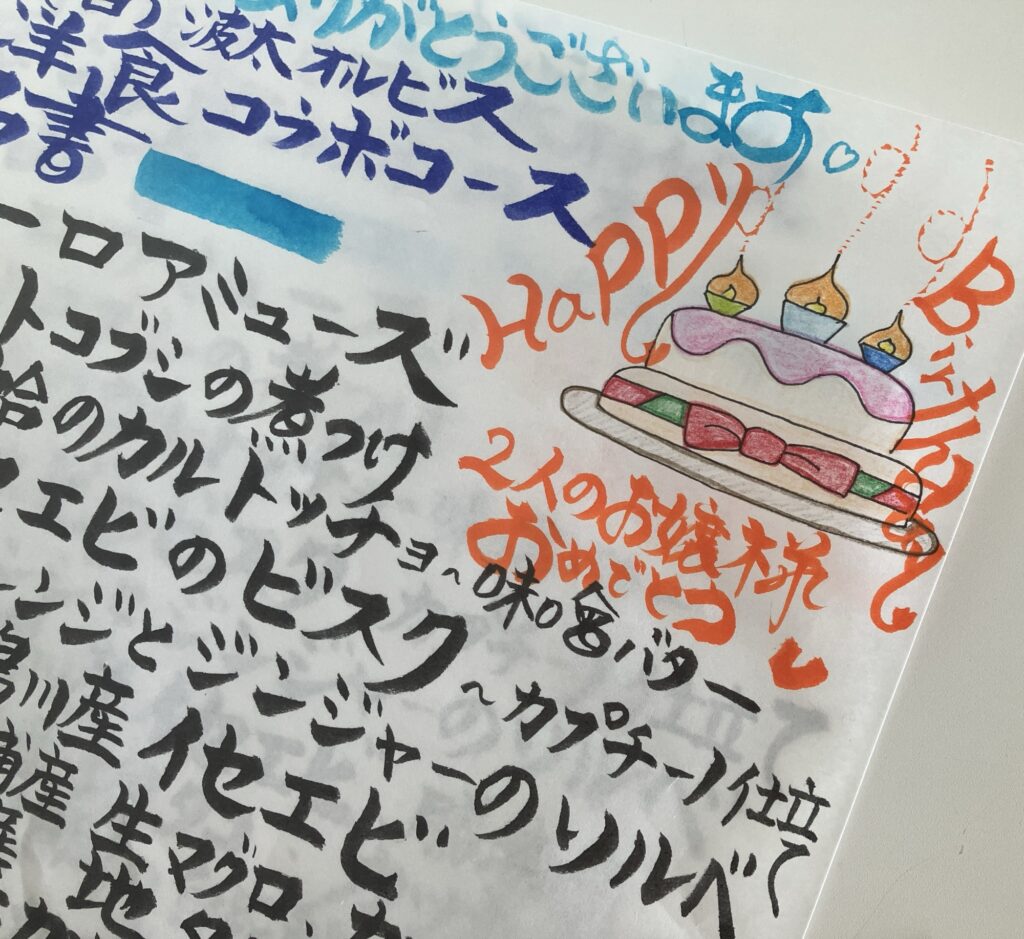 ありがとうございます
波太オルビス
洋食 コラボコース
書
アミューズ
トコブシの煮つけ
蛤のカルドッチョ~味噌バター
エビのビスク~カプチーノ仕立て
ンジとジンジャーのソルベ
川産 イセエビ
産 生マグロ
地
Happy Birthday
2人のお嬢様
おめでとう